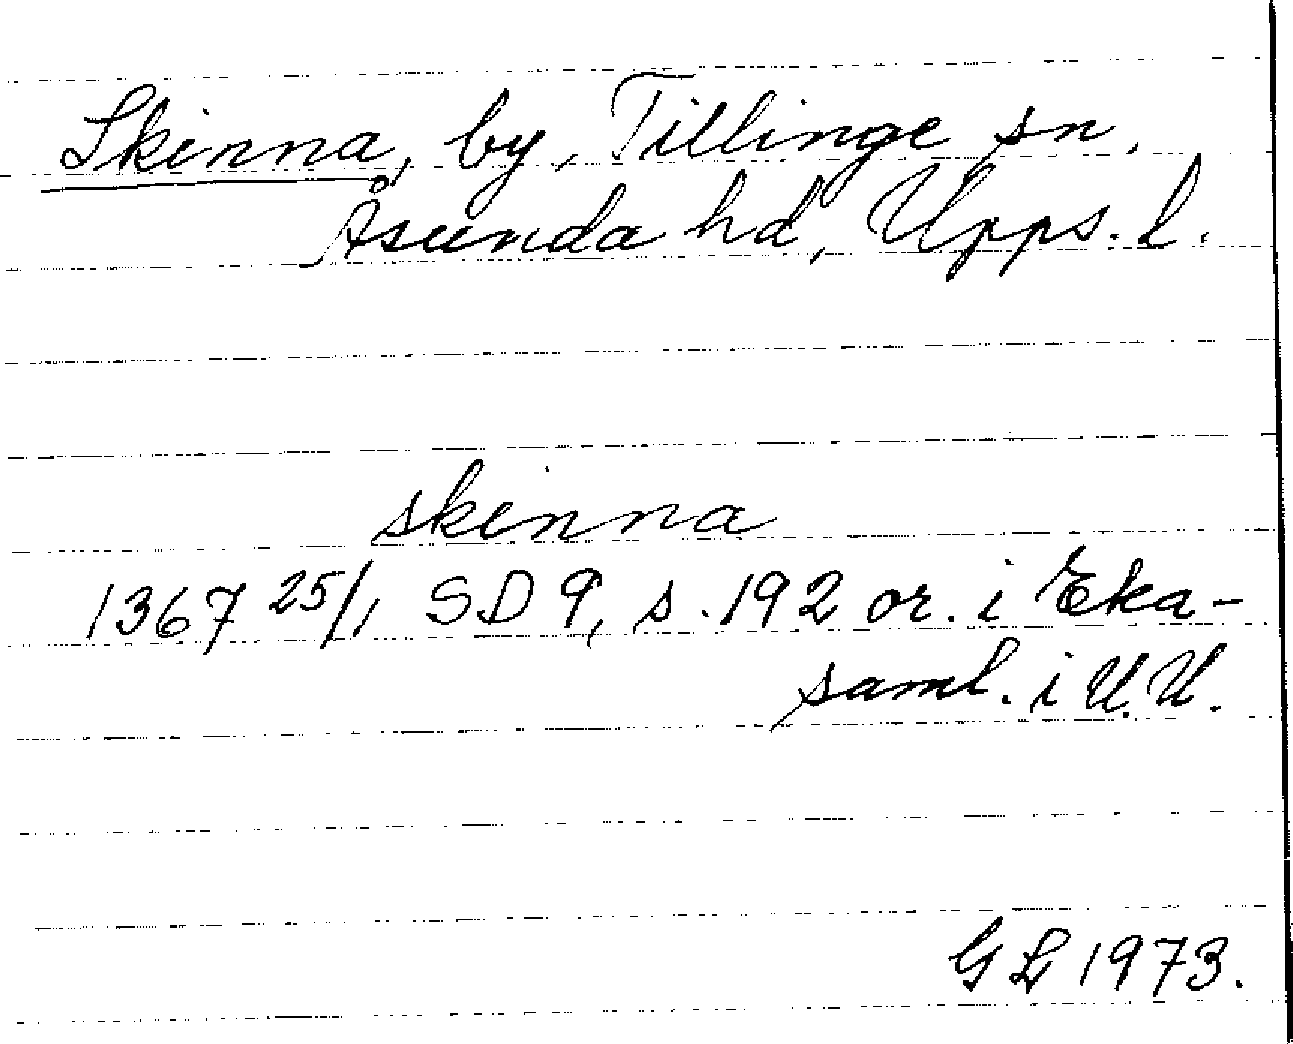 Skinna, by, Tillinge sn.
Åsunda hd, Upps. l.
skinna
1367 25/1 SD 9, s. 192 or. i Eka-
saml. i U.U.
GL 1973.